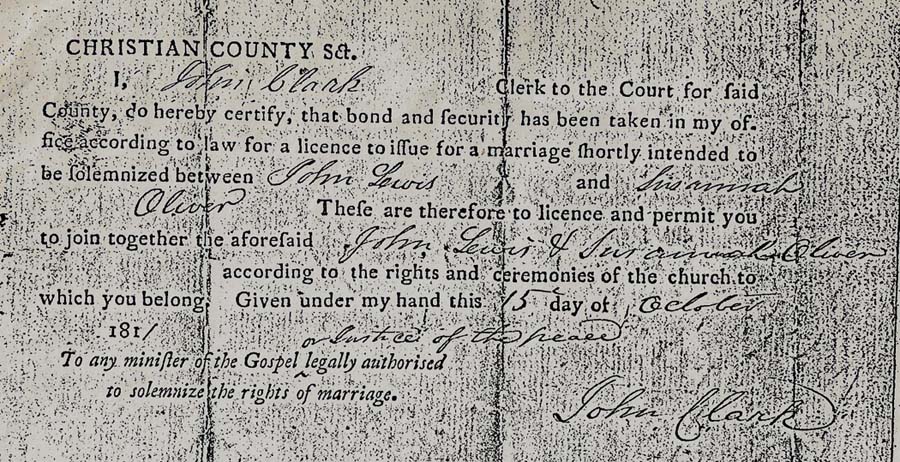 CHRISTIAN COUNTY Sct.
I, John Clark Clerk to the Court for ſaid
County, do hereby certify, that bond and ſecurity has been taken in my of-
fice according to law for a licence to iſſue for a marriage ſhortly intended to
be ſolemnized between John Lewis and Susannah
Oliver Theſe are therefore to licence and permit you
to join together the aforeſaid John Lewis & Susannah Oliver
according to the rights and ceremonies of the church to
which you belong. Given under my hand this 15 day of October
1811
or Justice of the peace
To any miniſter of the Goſpel legally authorised
to solemnize the rights of marriage.
John Clark